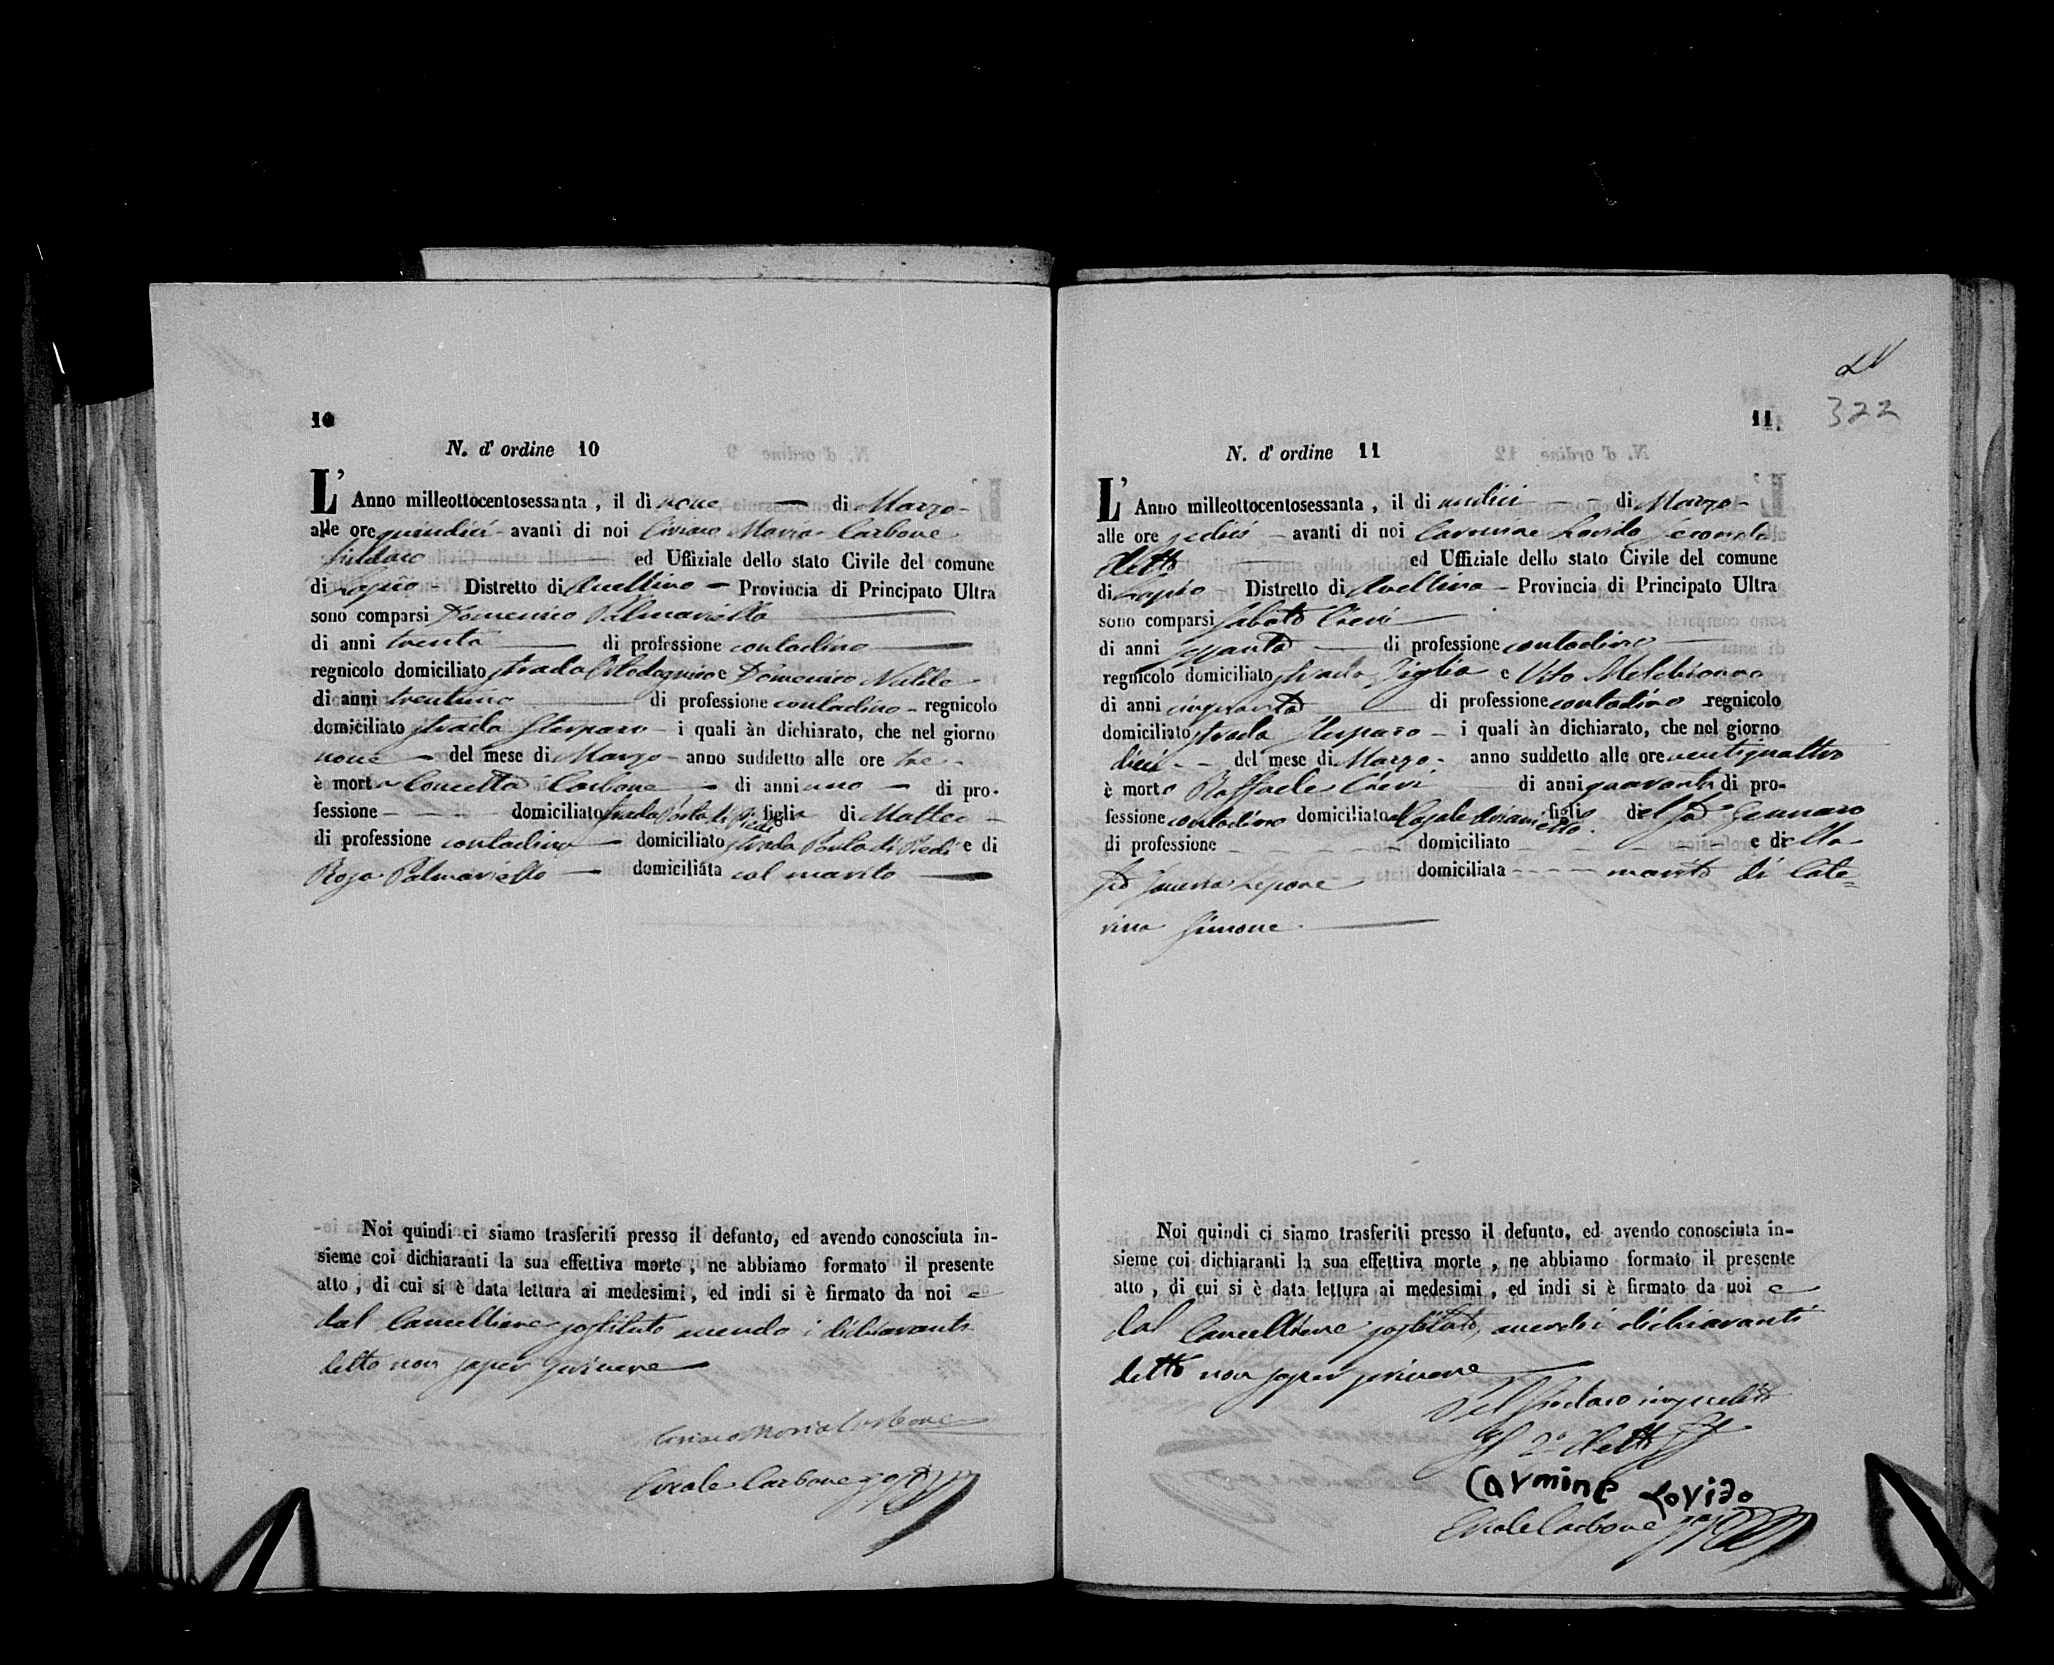 10
N. d' ordine 10
L' Anno milleottocentosessanta, il dì nove di Marzo
alle ore quindici avanti di noi Ciriaco Maria Carbone
Sindaco ed Uffiziale dello stato Civile del comune
di Lapio Distretto di Avellino Provincia di Principato Ultra
sono comparsi Domenico Palmariello
di anni trenta di professione contadino
regnicolo domiciliato strada e Domenico
di anni trentuno di professione contadino regnicolo
domiciliato strada i quali àn dichiarato, che nel giorno
nove del mese di Marzo anno suddetto alle ore tre
è morta Concetta Carbone di anni uno di pro-
fessione - - - domiciliato strada Porta di Piedi figlia di Matteo
di professione contadino domiciliato strada Porta di Piedi e di
Rosa Palmariello domiciliata col marito
Noi quindi ci siamo trasferiti presso il defunto, ed avendo conosciuta in-
sieme coi dichiaranti la sua effettiva morte, ne abbiamo formato il presente
atto, di cui si è data lettura ai medesimi, ed indi si è firmato da noi e
dal Cancelliere sostituto avendo i dichiaranti
detto non saper scrivere
Ciriaco Maria Carbone
Ercole Carbone
322
11
N. d' ordine 11
L' Anno milleottocentosessanta, il di undici - - di Marzo
alle ore sedici avanti di noi Carmine Lovido secondo
eletto ed Uffiziale dello stato Civile del comune
di Lapio Distretto di Avellino Provincia di Principato Ultra
sono comparsi Sabato
di anni sessanta di professione contadino
regnicolo domiciliato strada e Vito Melchionna
di anni cinquanta di professione contadino regnicolo
domiciliato strada i quali àn dichiarato, che nel giorno
dieci - - del mese di Marzo - anno suddetto alle ore ventiquattro
è morto Raffaele di anni quaranta di pro-
fessione contadino domiciliato Casale figlio del fu Gennaro
di professione - - - - domiciliato - - - - e di della
fu domiciliata - - - - marito di Cate=
rina Simone
Noi quindi ci siamo trasferiti presso il defunto, ed avendo conosciuta in-
sieme coi dichiaranti la sua effettiva morte, ne abbiamo formato il presente
atto, di cui si è data lettura ai medesimi, ed indi si è firmato da noi e
dal Cancelliere sostituto, avendo i dichiaranti
detto non saper scrivere
Pel Sindaco impedito
Il 2° Eletto
Carmine Lovido
Ercole Carbone